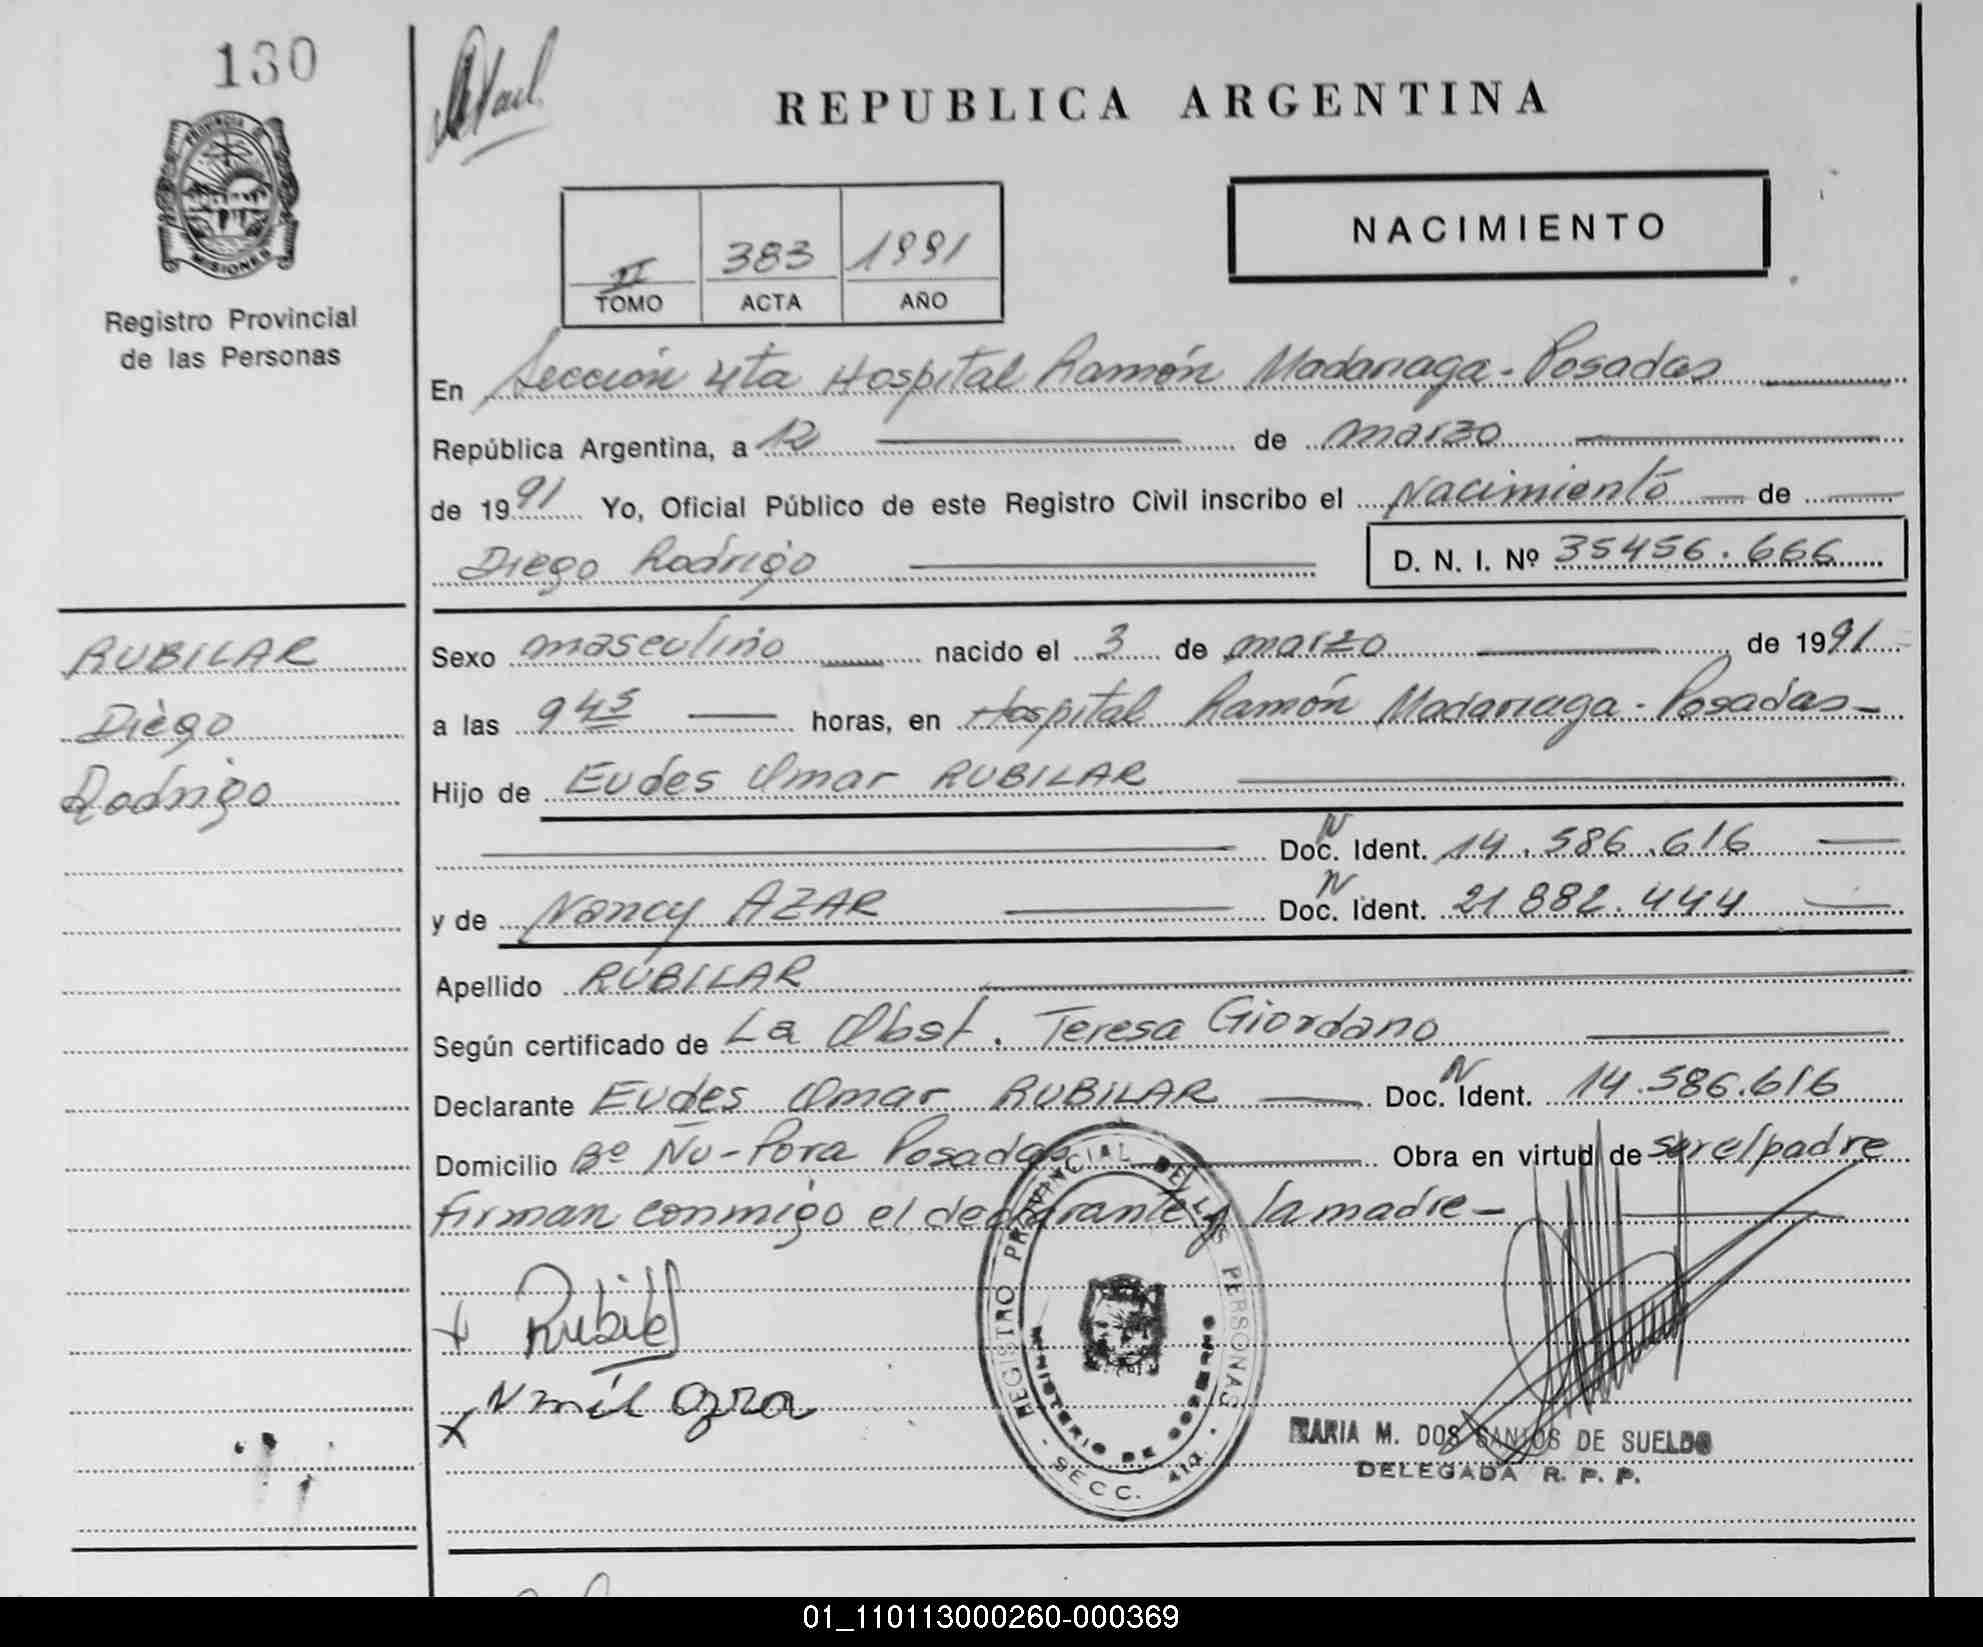 130
REPUBLICA ARGENTINA
PROVINCIA DE
MISIONES
Registro Provincial
de las Personas
NACIMIENTO
II 383 1991
TOMO ACTA AÑO
En Sección 4ta Hospital Ramón Madariaga - Posadas
República Argentina, a 12 de marzo
de 1991 Yo, Oficial Público de este Registro Civil inscribo el Nacimiento de
Diego Rodrigo D. N. I. Nº 35456.666
RUBILAR
Diego
Rodrigo
Sexo masculino nacido el 3 de marzo de 1991
a las 9 45 horas, en Hospital Ramón Madariaga - Posadas-
Hijo de Eudes Omar RUBILAR
Doc. N Ident. 14.586.616
y de Nancy AZAR Doc. N Ident. 21882.444
Apellido RUBILAR
Según certificado de La Obst. Teresa Giordano
Declarante Eudes Omar RUBILAR Doc. N Ident. 14.586.616
Domicilio Bº Ñu-Pora Posadas Obra en virtud de ser el padre
firman conmigo el declarante y la madre-
REGISTRO PROVINCIAL DE LAS PERSONAS
MINISTERIO DE GOBIERNO
SECC. 4ta.
MARIA M. DOS SANTOS DE SUELDO
DELEGADA R. P. P.
01_110113000260-000369